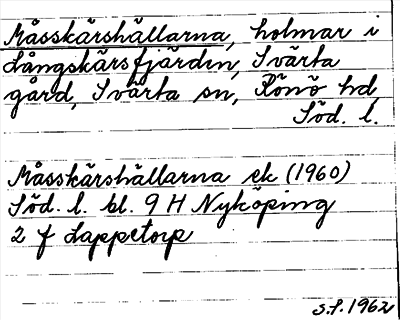 Måsskärshällarna, holmar i
Långskärsfjärdin, Svärta
gård, Svärta sn, Rönö hd,
Söd. l.
Måsskärshällarna ek (1960)
Söd. l. bl. 9 H Nyköping
2 f Lappetorp
S.F. 1962